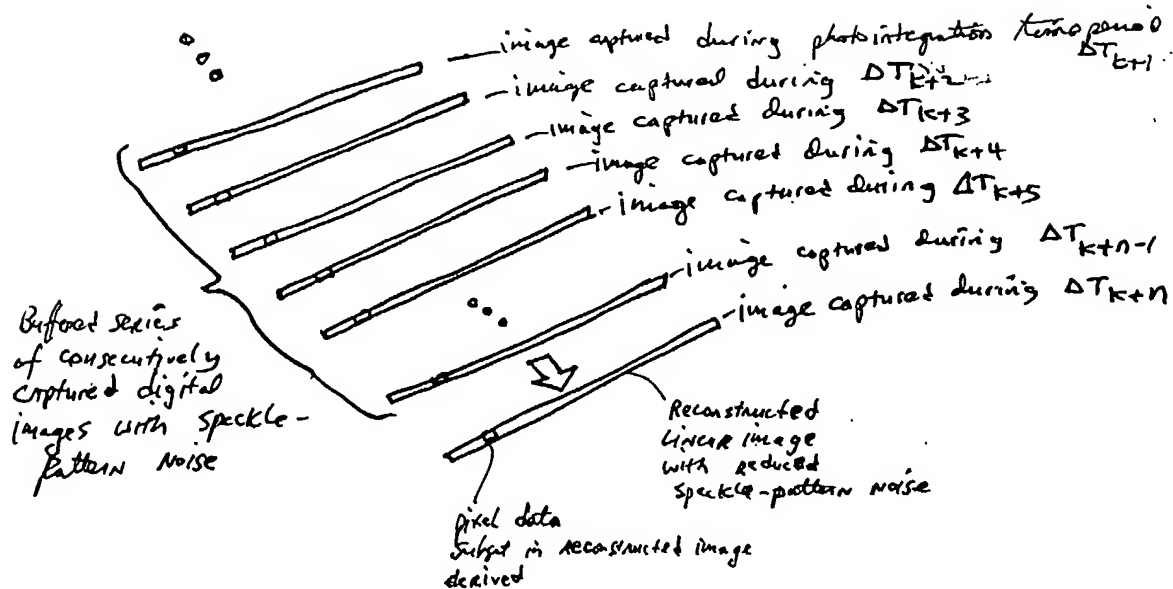 image captured during photointegration time period
ΔT_{k+1}
image captured during ΔT_{k+2}
image captured during ΔT_{k+3}
image captured during ΔT_{k+4}
image captured during ΔT_{k+5}
image captured during ΔT_{k+n-1}
image captured during ΔT_{k+n}
Buffered series
of consecutively
captured digital
images with speckle-
pattern noise
Reconstructed
Linear image
with reduced
Speckle-pattern noise
pixel data
subset in reconstructed image
derived